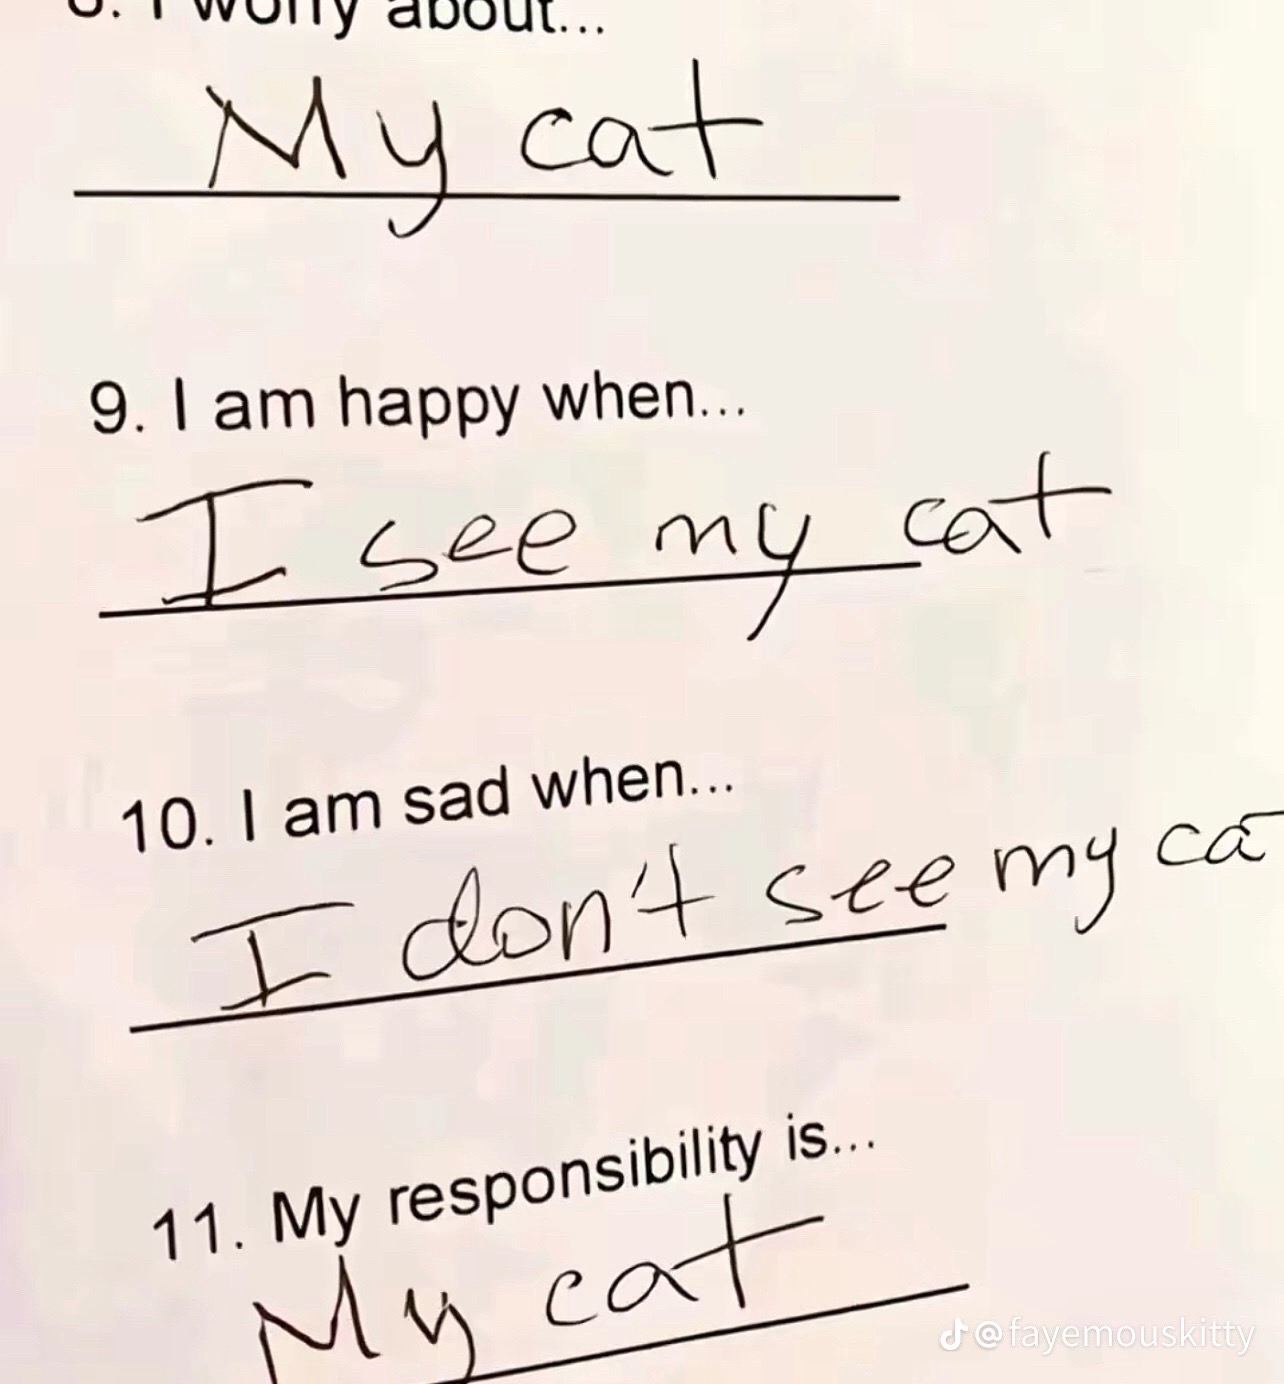 8. I worry about...
My cat
9. I am happy when...
I see my cat
10. I am sad when...
I don't see my ca
11. My responsibility is...
My cat
@fayemouskitty